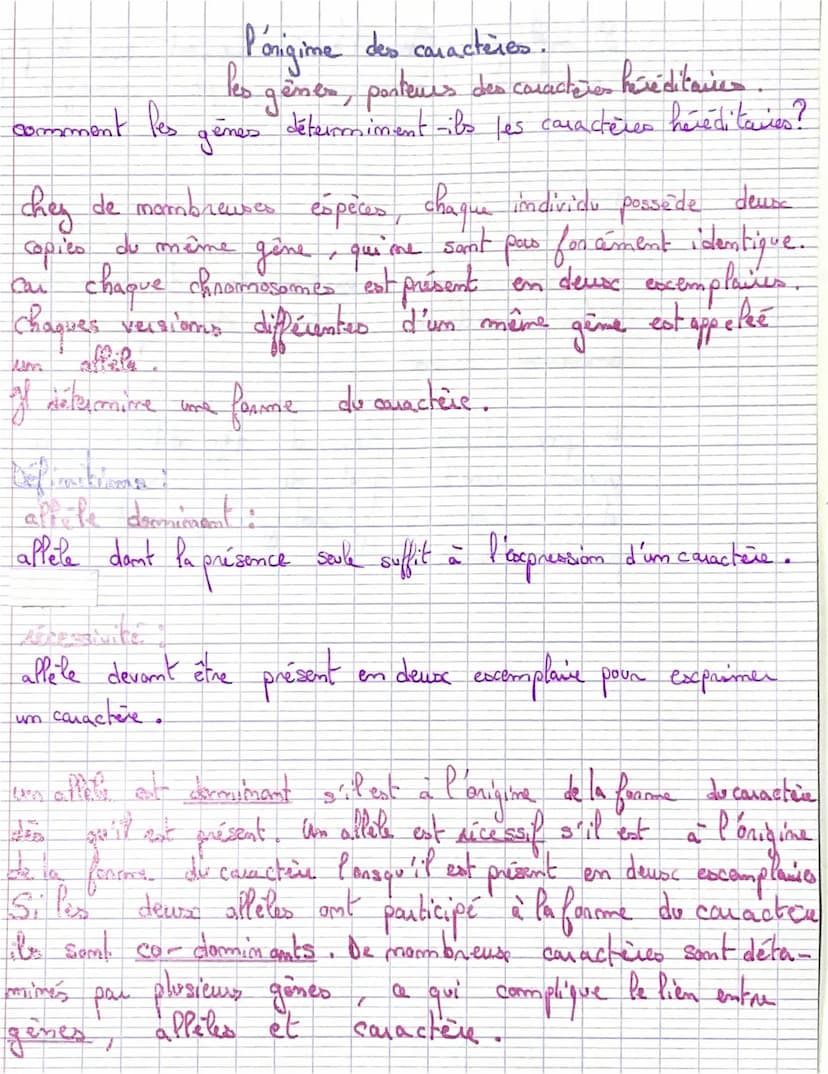 l'origine des caractères.
les gènes, porteurs des caractères héréditaires.
comment les gènes déterminent-ils les caractères héréditaires?
chez de nombreuses espèces, chaque individu possède deux
copies du même gène, qui ne sont pas forcément identique.
car chaque chromosomes est présent en deux exemplaires.
chaques versions différentes d'un même gène est appeleé
un allèle.
Il détermine une forme du caractère.
Définitions :
allèle dominant :
allèle dont la présence seule suffit à l'expression d'un caractère.
récessivité :
allèle devant être présent en deux exemplaire pour exprimer
un caractère.
un allèle est dominant s'il est à l'origine de la forme du caractère
dès qu'il est présent. Un allèle est récessif s'il est à l'origine
de la forme du caractère lorsqu'il est présent en deux exemplaires
Si les deux allèles ont participé à la forme du caractère
ils sont co-dominants. De nombreux caractères sont déter-
minés par plusieurs gènes, ce qui complique le lien entre
gènes, allèles et caractère.